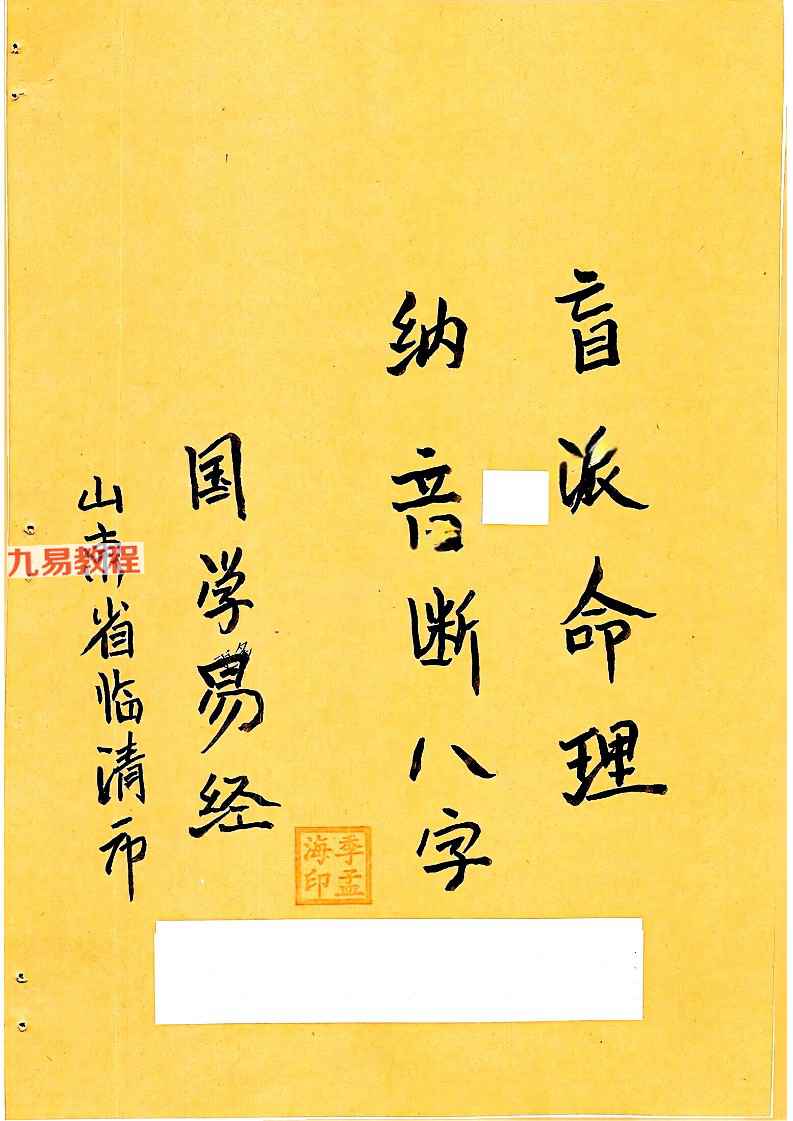 盲派命理
纳音断八字
国学易经
山东省临清市
九易教程
季孟
海印